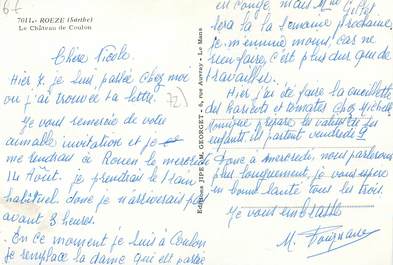 67
7011.- ROEZE (Sarthe)
Le Château de Coulon
Chère Nicole.
Hier 7, je suis passée chez moi
où j'ai trouvée ta lettre.
Je vous remercie de votre
aimable invitation et je
me rendrais à Rouen le mercredi
14 Août. je prendrais le train
habituel donc je n'arriverais pas
avant 3 heures.
En ce moment je suis à Coulon
je remplace la dame qui est partie
72)
Editions JIPE, M. GEORGET - 8, rue Auvray - Le Mans
en congé, mais Mme
sera là la semaine prochaine.
Je m'ennuie moins, car ne
rien faire, c'est plus dur que de
travailler.
Hier j'ai été faire la cueillette
des haricots et tomates chez Michel
Monique prépare les valises des
enfants ils partent vendredi 9
Donc à mercredi, nous parlerons
plus longuement, je vous espère
en bonne santé tous les trois.
Je vous embrasse
M.